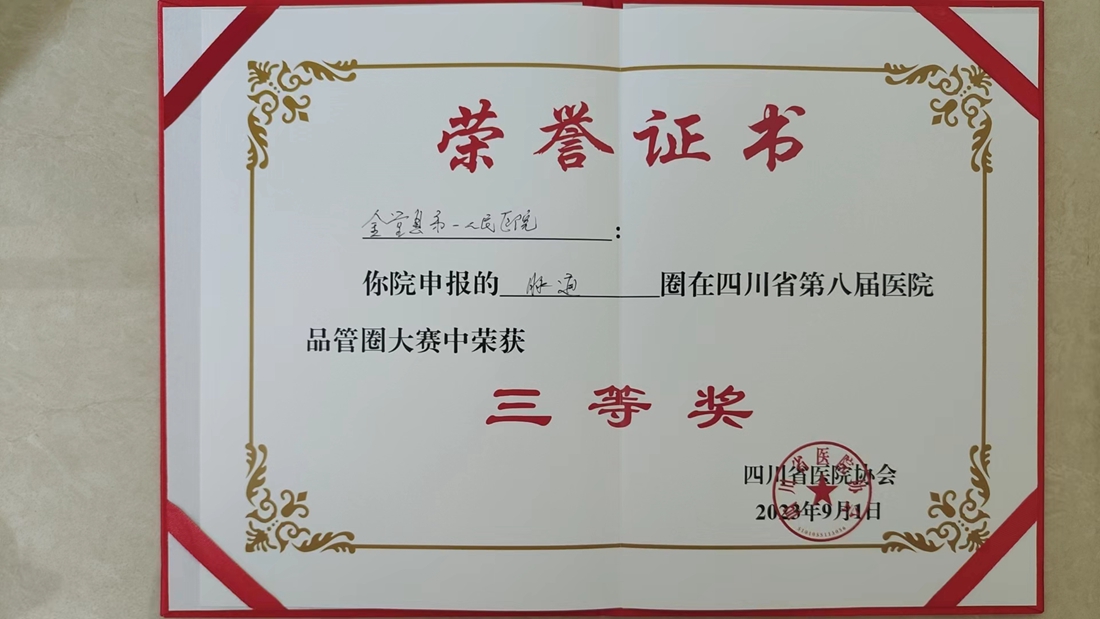 荣誉证书
金堂县第一人民医院：
你院申报的 脉通 圈在四川省第八届医院
品管圈大赛中荣获
三等奖
四川省医院协会
2023年9月1日
四川省医院协会